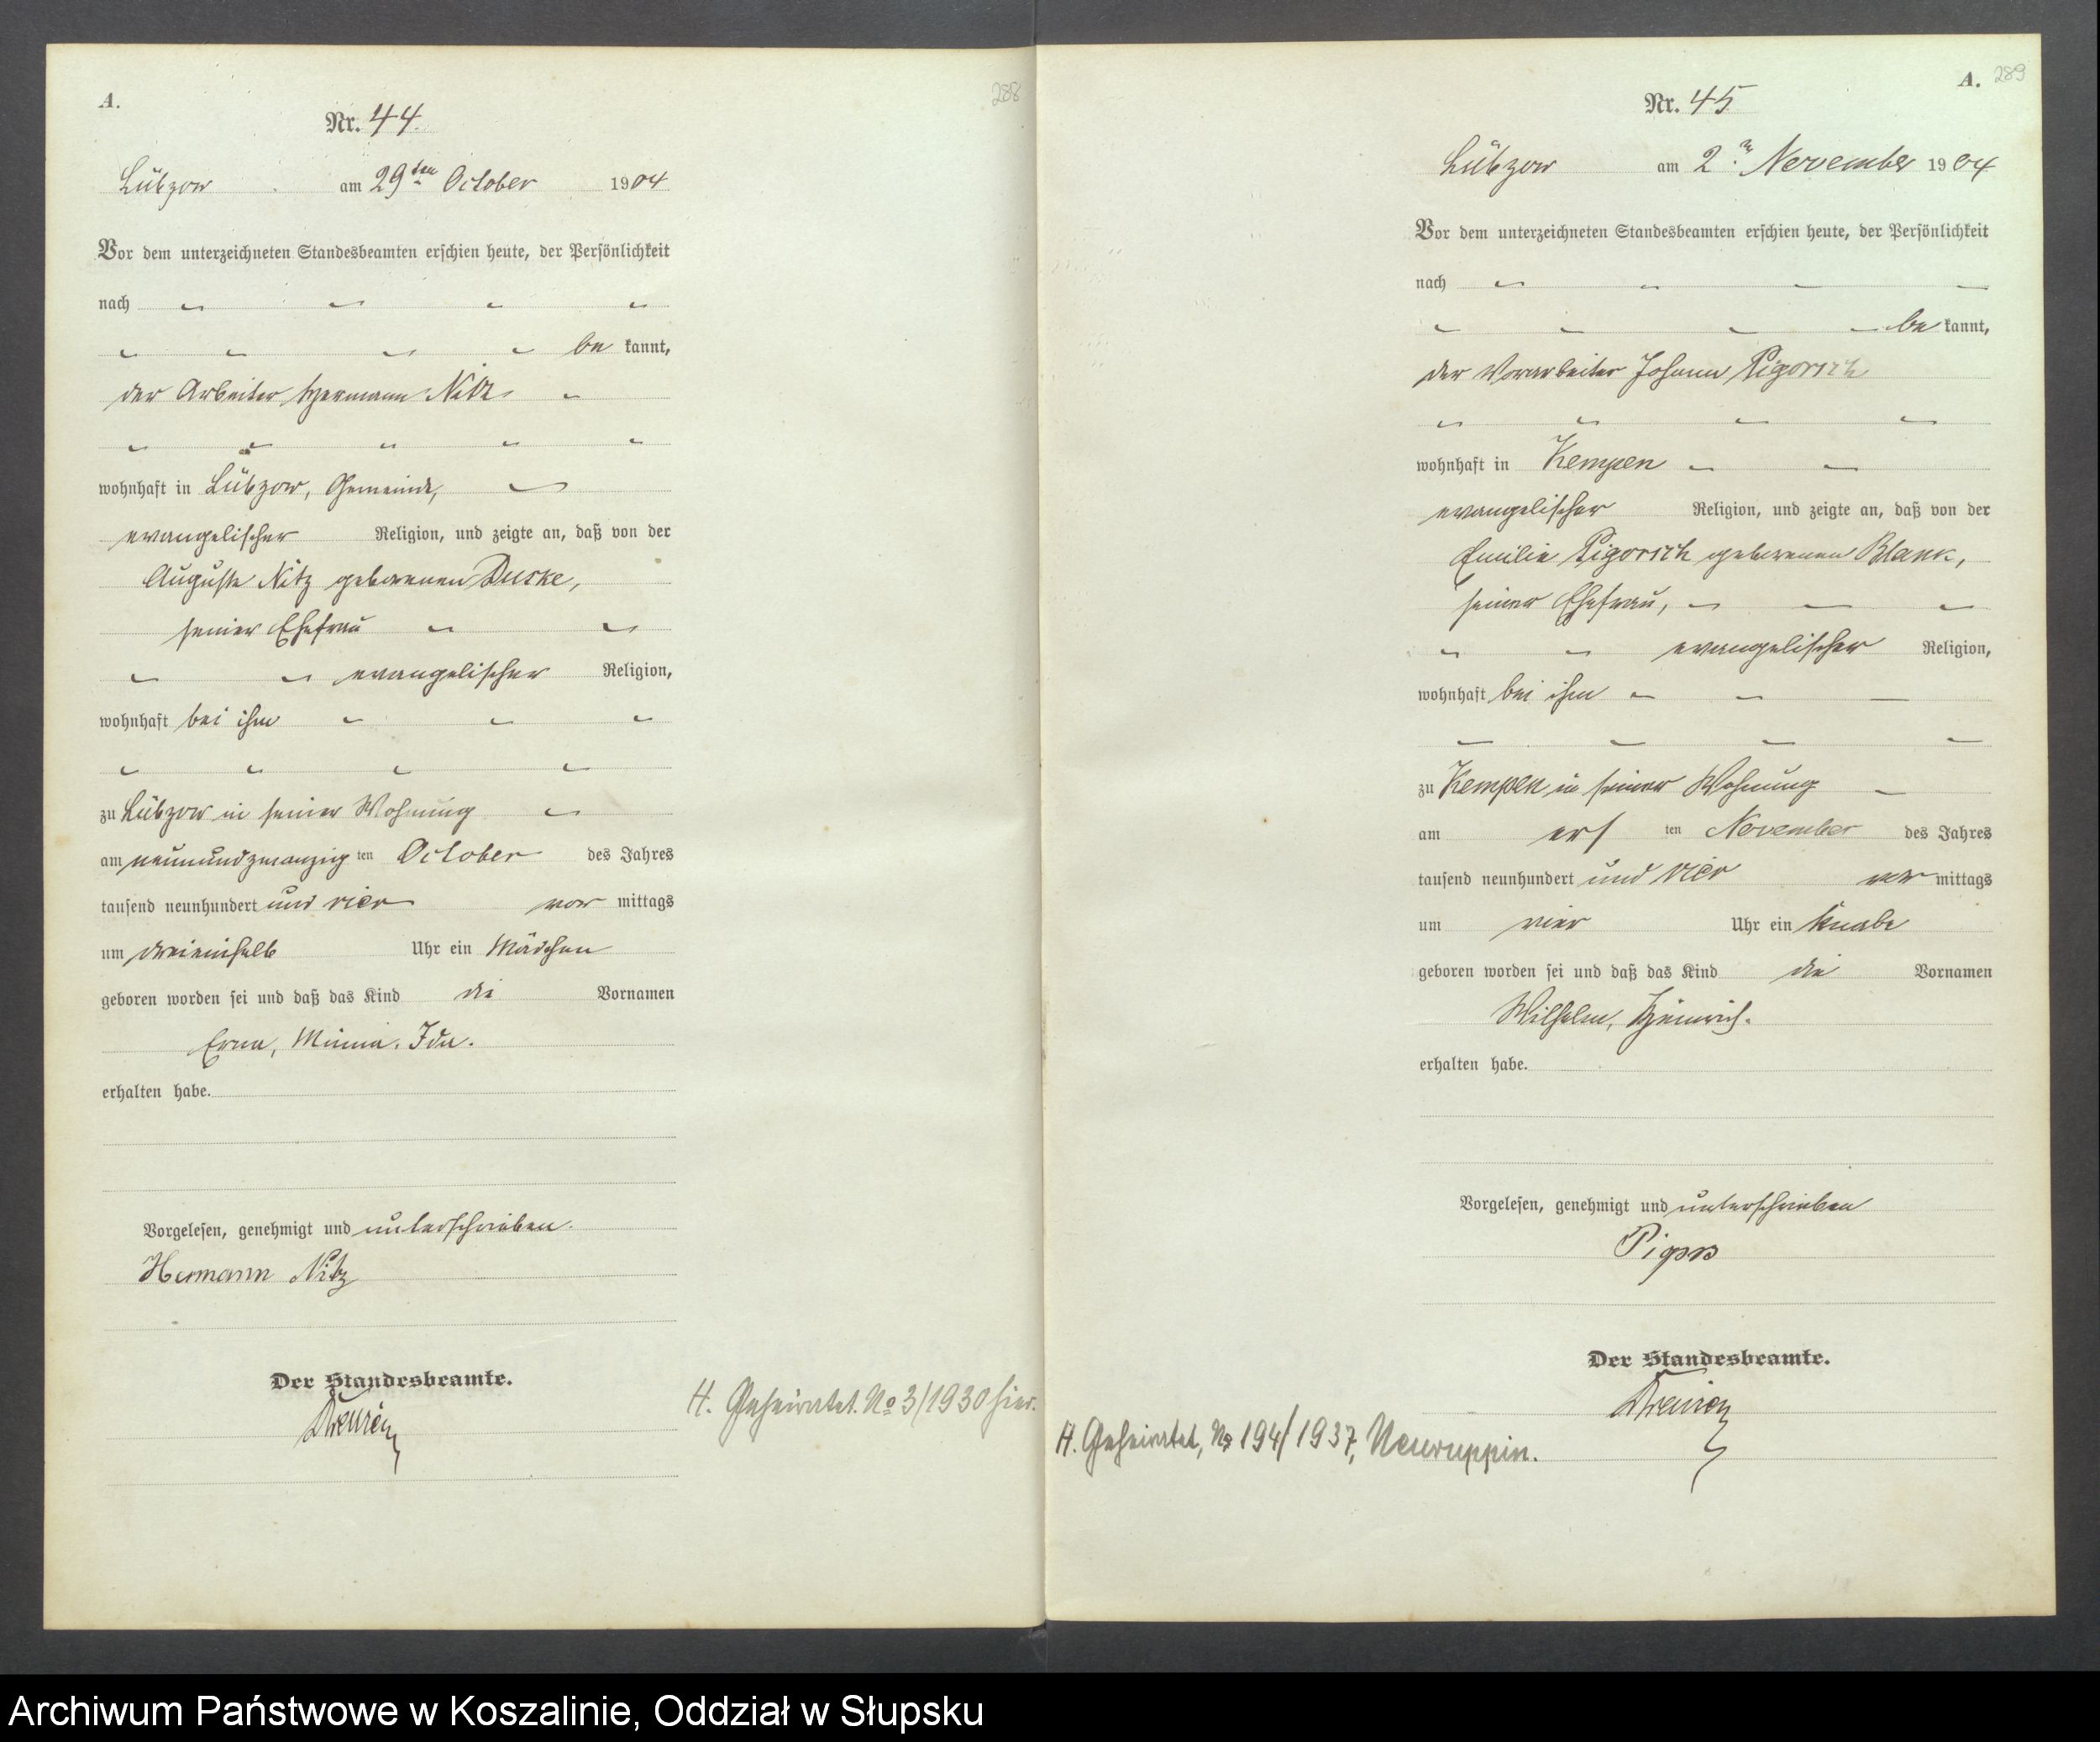 A.
288
Nr. 44.
Lübzow am 29ten October 1904
Vor dem unterzeichneten Standesbeamten erschien heute, der Persönlichkeit
nach
be kannt,
der Arbeiter Hermann Nitz
wohnhaft in Lübzow, Gemeinde,
evangelischer Religion, und zeigte an, daß von der
Auguste Nitz geborenen Duske,
seiner Ehefrau
evangelischer Religion,
wohnhaft bei ihm
zu Lübzow in seiner Wohnung
am neunundzwanzig ten October des Jahres
tausend neunhundert und vier vor mittags
um dreieinhalb Uhr ein Mädchen
geboren worden sei und daß das Kind die Vornamen
Erna, Minna, Ida.
erhalten habe.
Vorgelesen, genehmigt und unterschrieben.
Hermann Nitz
Der Standesbeamte.
H. Geheiratet. No 3/1930 hier.
A. 289
Nr. 45
Lübzow am 2. November 1904
Vor dem unterzeichneten Standesbeamten erschien heute, der Persönlichkeit
nach
be kannt,
der Vorarbeiter Johann Pigorsch
wohnhaft in Kempen
evangelischer Religion, und zeigte an, daß von der
Emilie Pigorsch geborenen Blank,
seiner Ehefrau,
evangelischer Religion,
wohnhaft bei ihm
zu Kempen in seiner Wohnung
am ers ten November des Jahres
tausend neunhundert und vier vor mittags
um vier Uhr ein Knabe
geboren worden sei und daß das Kind die Vornamen
Wilhelm, Heinrich.
erhalten habe.
Vorgelesen, genehmigt und unterschrieben
Der Standesbeamte.
H. Geheiratet, No 194/1937, Neuruppin.
Archiwum Państwowe w Koszalinie, Oddział w Słupsku